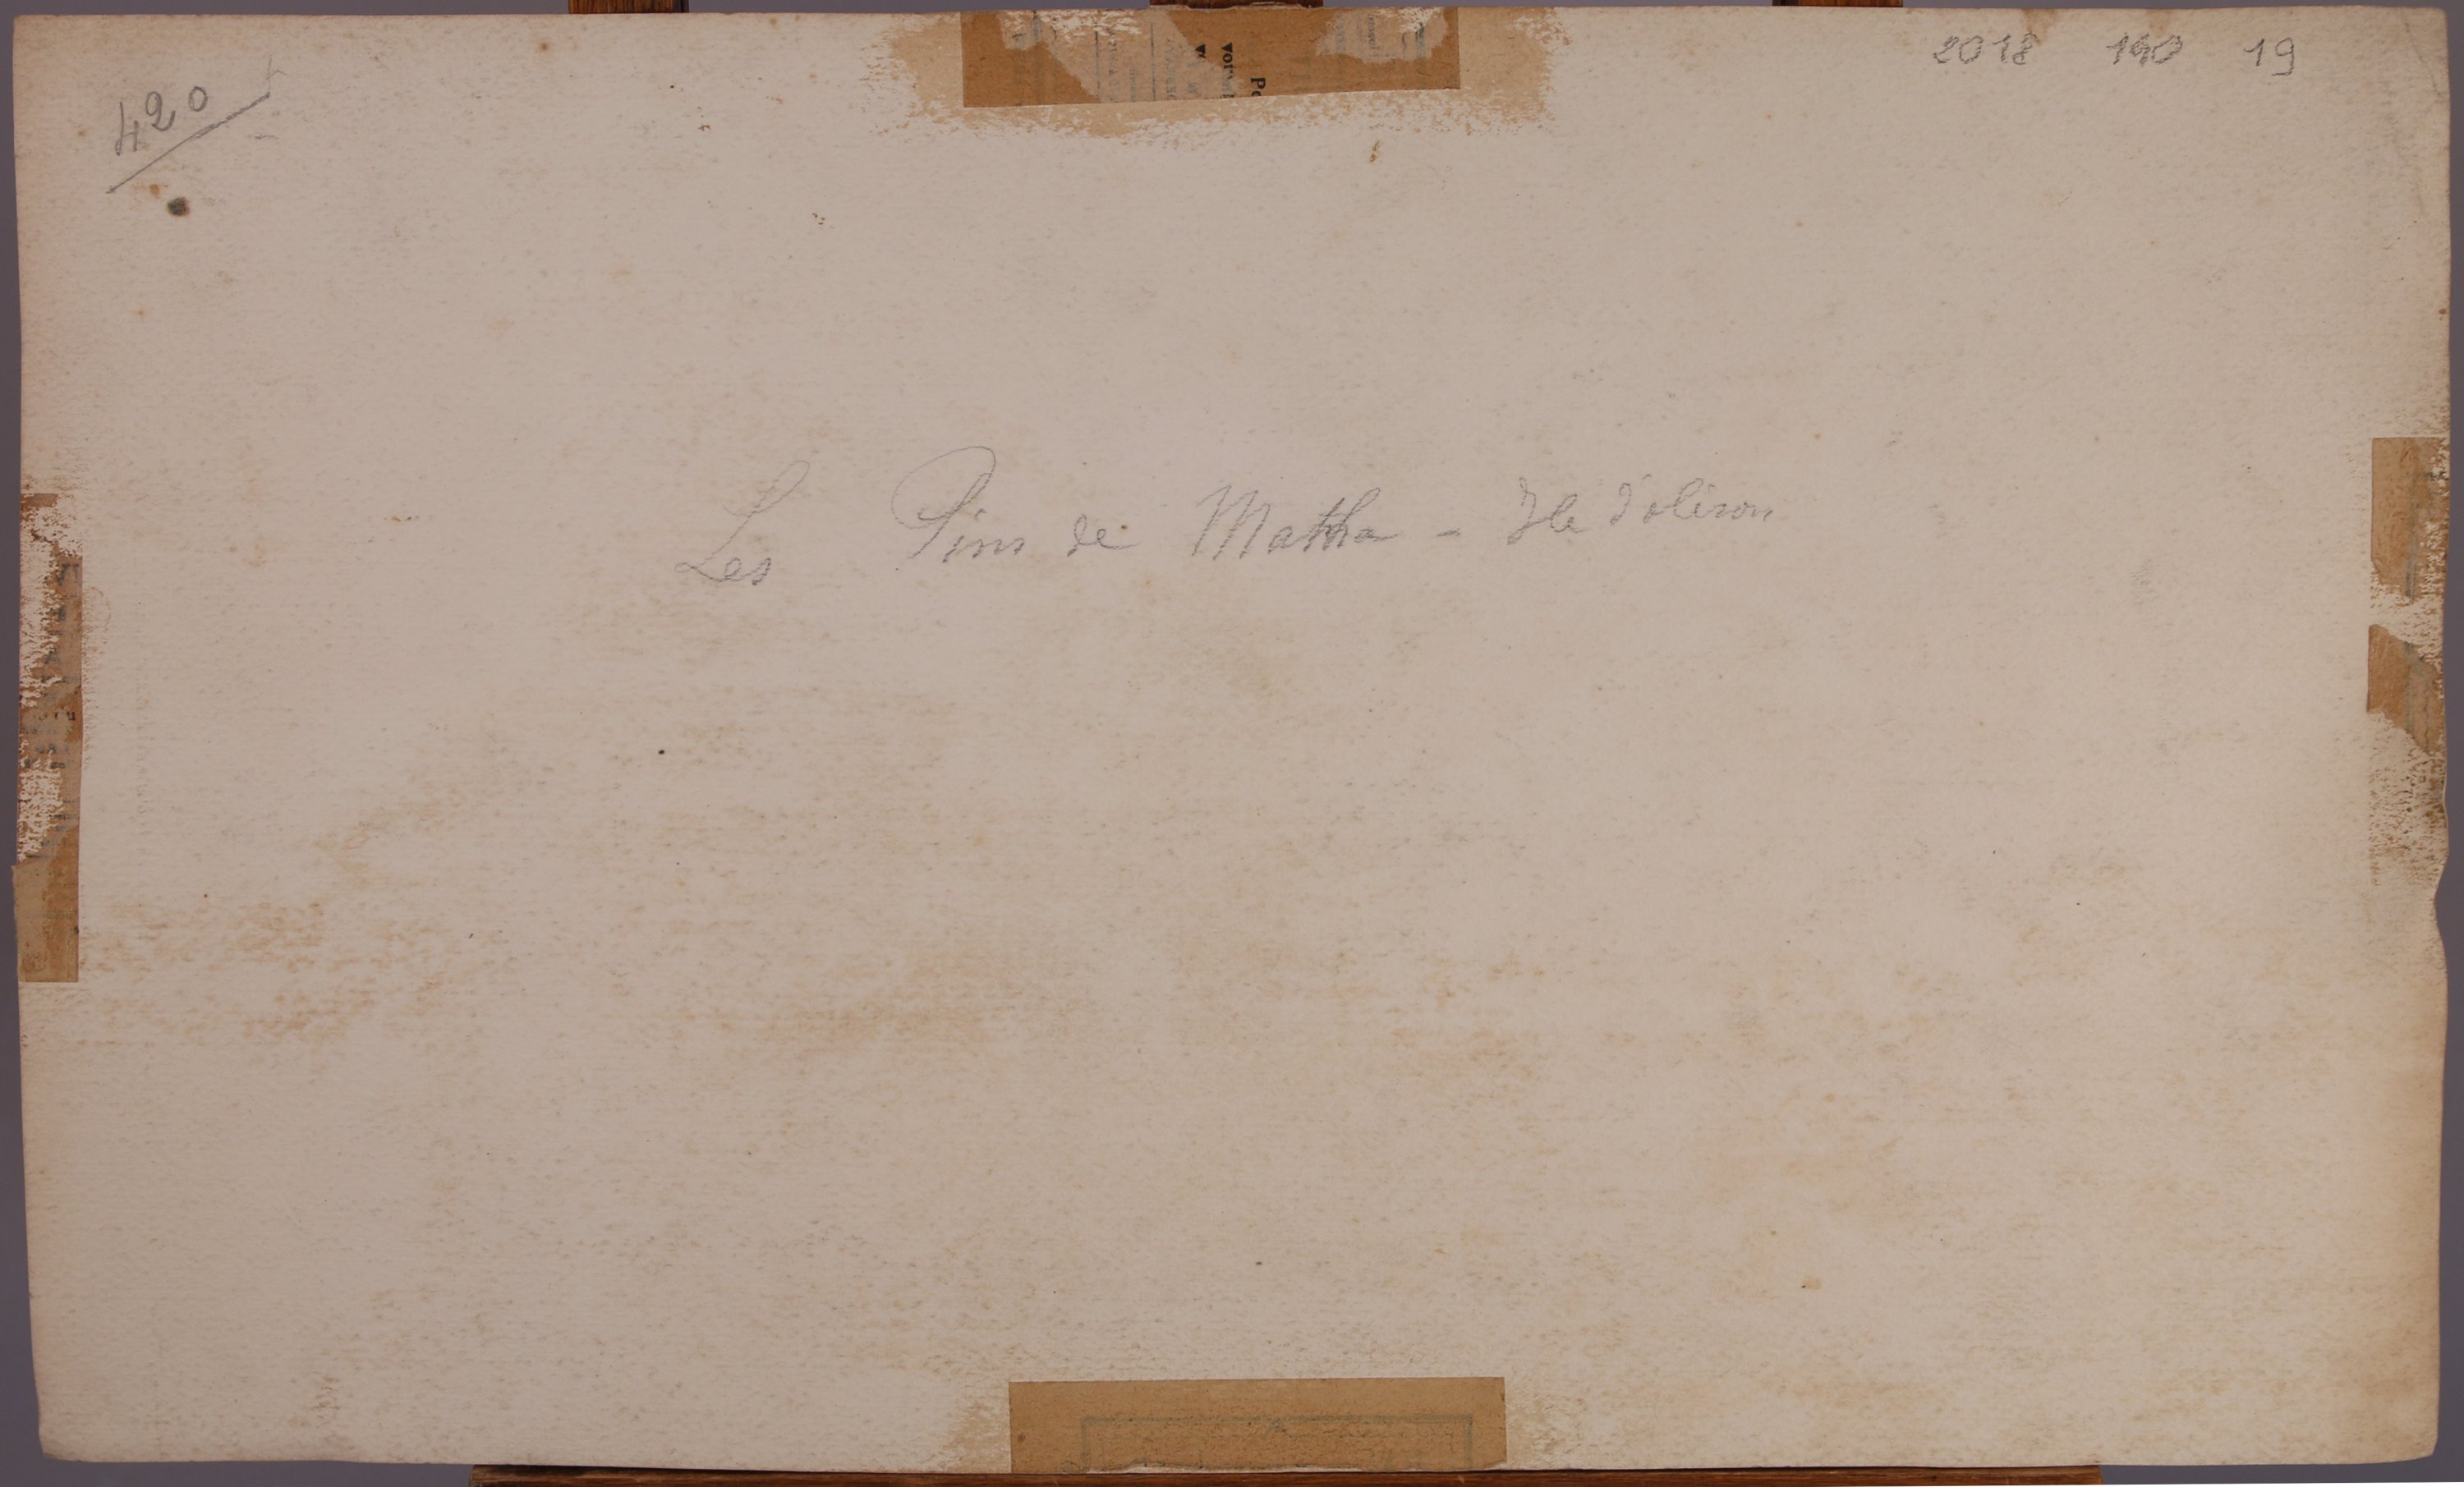 420
2018 140 19
Les Pins de Matha - Ile d'oléron